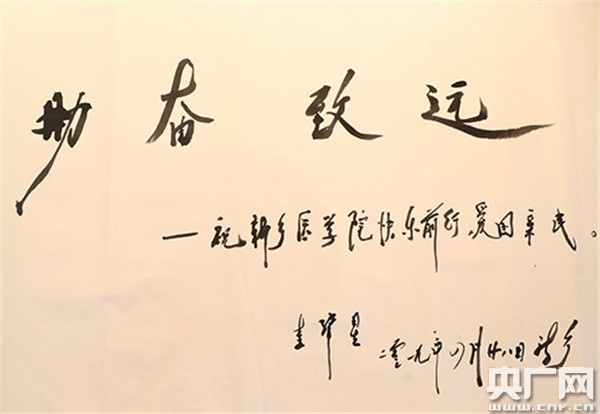 勤奋致远
—祝新乡医学院快乐前行，爱国亲民。
李肇星 二零一九年四月廿八日 新乡
央广网
www.cnr.cn